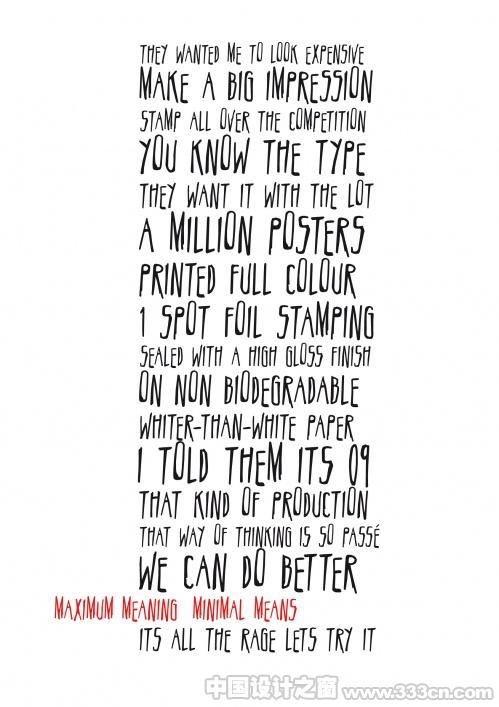 THEY WANTED ME TO LOOK EXPENSIVE
MAKE A BIG IMPRESSION
STAMP ALL OVER THE COMPETITION
YOU KNOW THE TYPE
THEY WANT IT WITH THE LOT
A MILLION POSTERS
PRINTED FULL COLOUR
1 SPOT FOIL STAMPING
SEALED WITH A HIGH GLOSS FINISH
ON NON BIODEGRADABLE
WHITER-THAN-WHITE PAPER
I TOLD THEM ITS 09
THAT KIND OF PRODUCTION
THAT WAY OF THINKING IS SO PASSÉ
WE CAN DO BETTER
MAXIMUM MEANING MINIMAL MEANS
ITS ALL THE RAGE LETS TRY IT
中国设计之窗 www.333cn.com